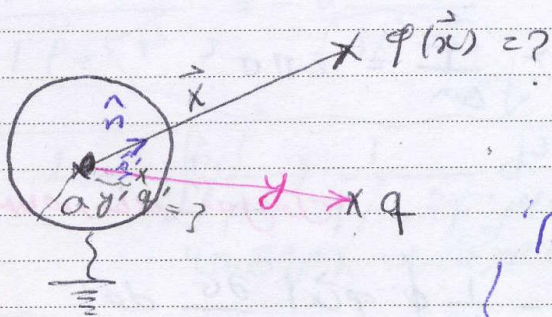 φ(x⃗) = ?
x⃗
n̂
n̂'
a y' q' = ?
y
q